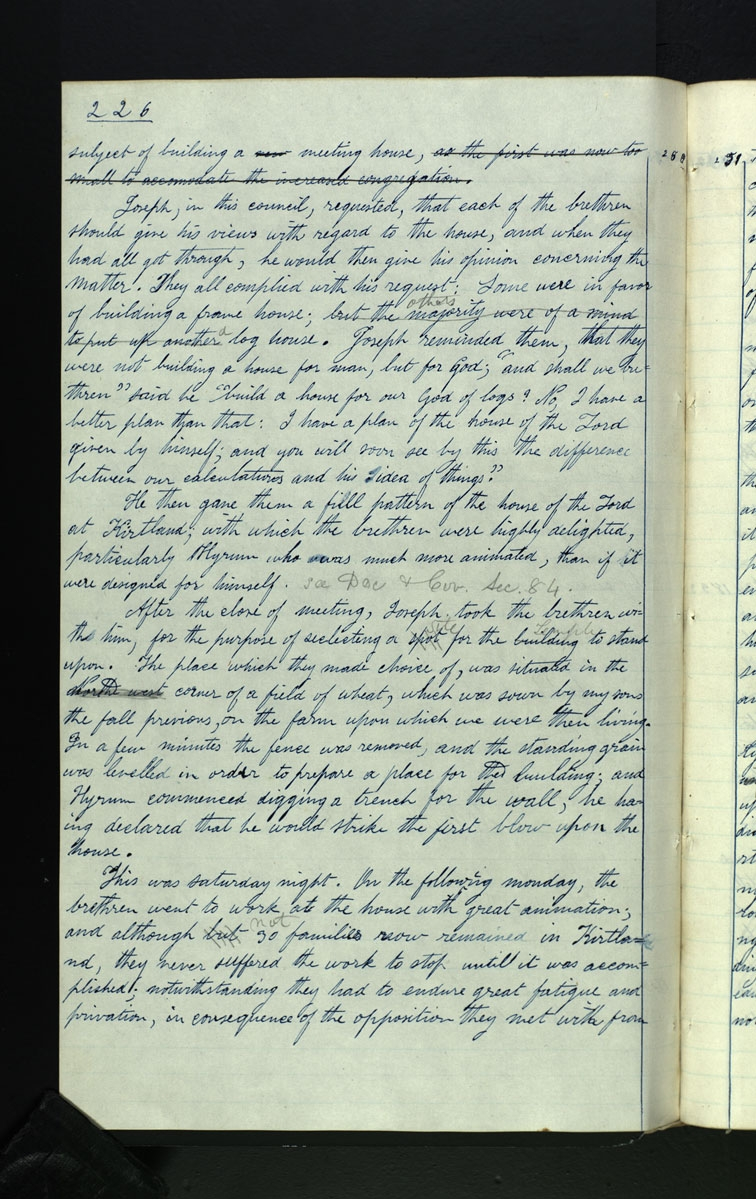 226
subject of building a new meeting house, as the first was now too
small to accomodate the increased congregation.
Joseph, in this council, requested, that each of the brethren
should give his views with regard to the house, and when they
had all got through, he would then give his opinion concerning the
matter. They all complied with his request: Some were in favor
of building a frame house; but the majority were of a mind
others
to put up another a log house. Joseph reminded them, that they
were not building a house for man, but for God; "and shall we bre=
thren" said he "build a house for our God of logs? No, I have a
better plan than that: I have a plan of the house of the Lord
given by himself; and you will soon see by this the difference
between our calculations and his idea of things."
He then gave them a full pattern of the house of the Lord
at Kirtland; with which the brethren were highly delighted,
particularly Hyrum who was much more animated, than if it
were designed for himself. see Doc & Cov. Sec. 84.
After the close of meeting, Joseph, took the brethren wi-
th him, for the purpose of seclecting a spot for the building to stand
site Temple
upon. The place which they made choice of, was situated in the
North west corner of a field of wheat, which was sown by my sons
the fall previous, on the farm upon which we were then living.
In a few minutes the fence was removed, and the standing grain
was levelled in order to prepare a place for the building; and
Hyrum commenced digging a trench for the wall, he ha-
ing declared that he would strike the first blow upon the
house.
This was saturday night. On the following monday, the
brethren went to work at the house with great animation;
and although but not 30 families now remained in Kirtla=
nd, they never suffered the work to stop until it was accom=
plished; notwithstanding they had to endure great fatigue and
privation, in consequence of the opposition they met with from